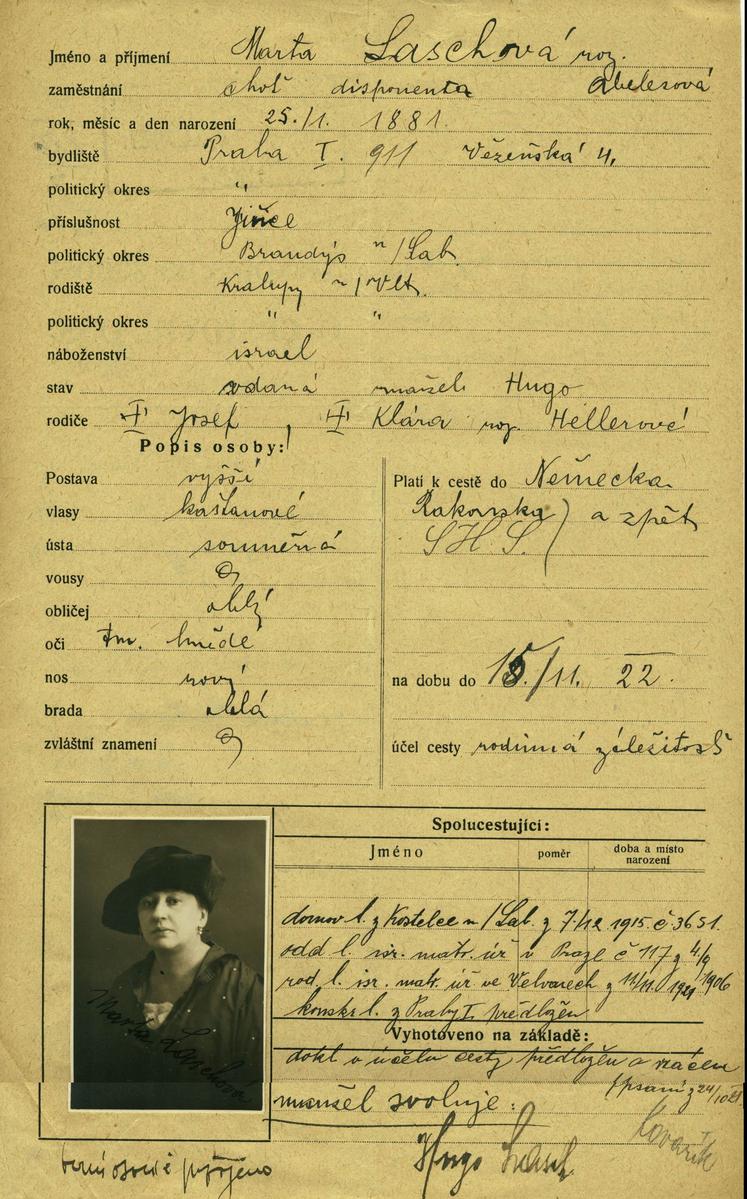 Jméno a příjmení Marta Laschová roz.
zaměstnání choť disponenta Abelesová
rok, měsíc a den narození 25./1. 1881.
bydliště Praha I. 911 Vězeňská 4.
politický okres "
příslušnost Jiřice
politický okres Brandýs n/Lab.
rodiště Kralupy n/Vlt.
politický okres " "
náboženství israel
stav vdaná manžel: Hugo
rodiče Josef, Klára roz. Hellerové
Popis osoby:
Postava vyšší
vlasy kaštanové
ústa souměrná
vousy
obličej oblý
oči tm. hnědé
nos rovný
brada oblá
zvláštní znamení
Platí k cestě do Německa
Rakouska
S.H.S. ) a zpět
na dobu do 15./11. 22.
účel cesty rodinná záležitost
Spolucestující:
Jméno poměr doba a místo
narození
domov. l. z Kostelce n/Lab. z 7/12 1915 č. 3651.
odd. l. isr. matr. úř. v Praze č 117 z 4/9 1906
rod. l. isr. matr. úř. ve Velvarech z 11/11. 1921
konskr. l. z Prahy I. předložen
Vyhotoveno na základě:
dokl. o účelu cesty předložen a vrácen
manžel svoluje:
Hugo Lasch
Kovařík
Marta Laschová